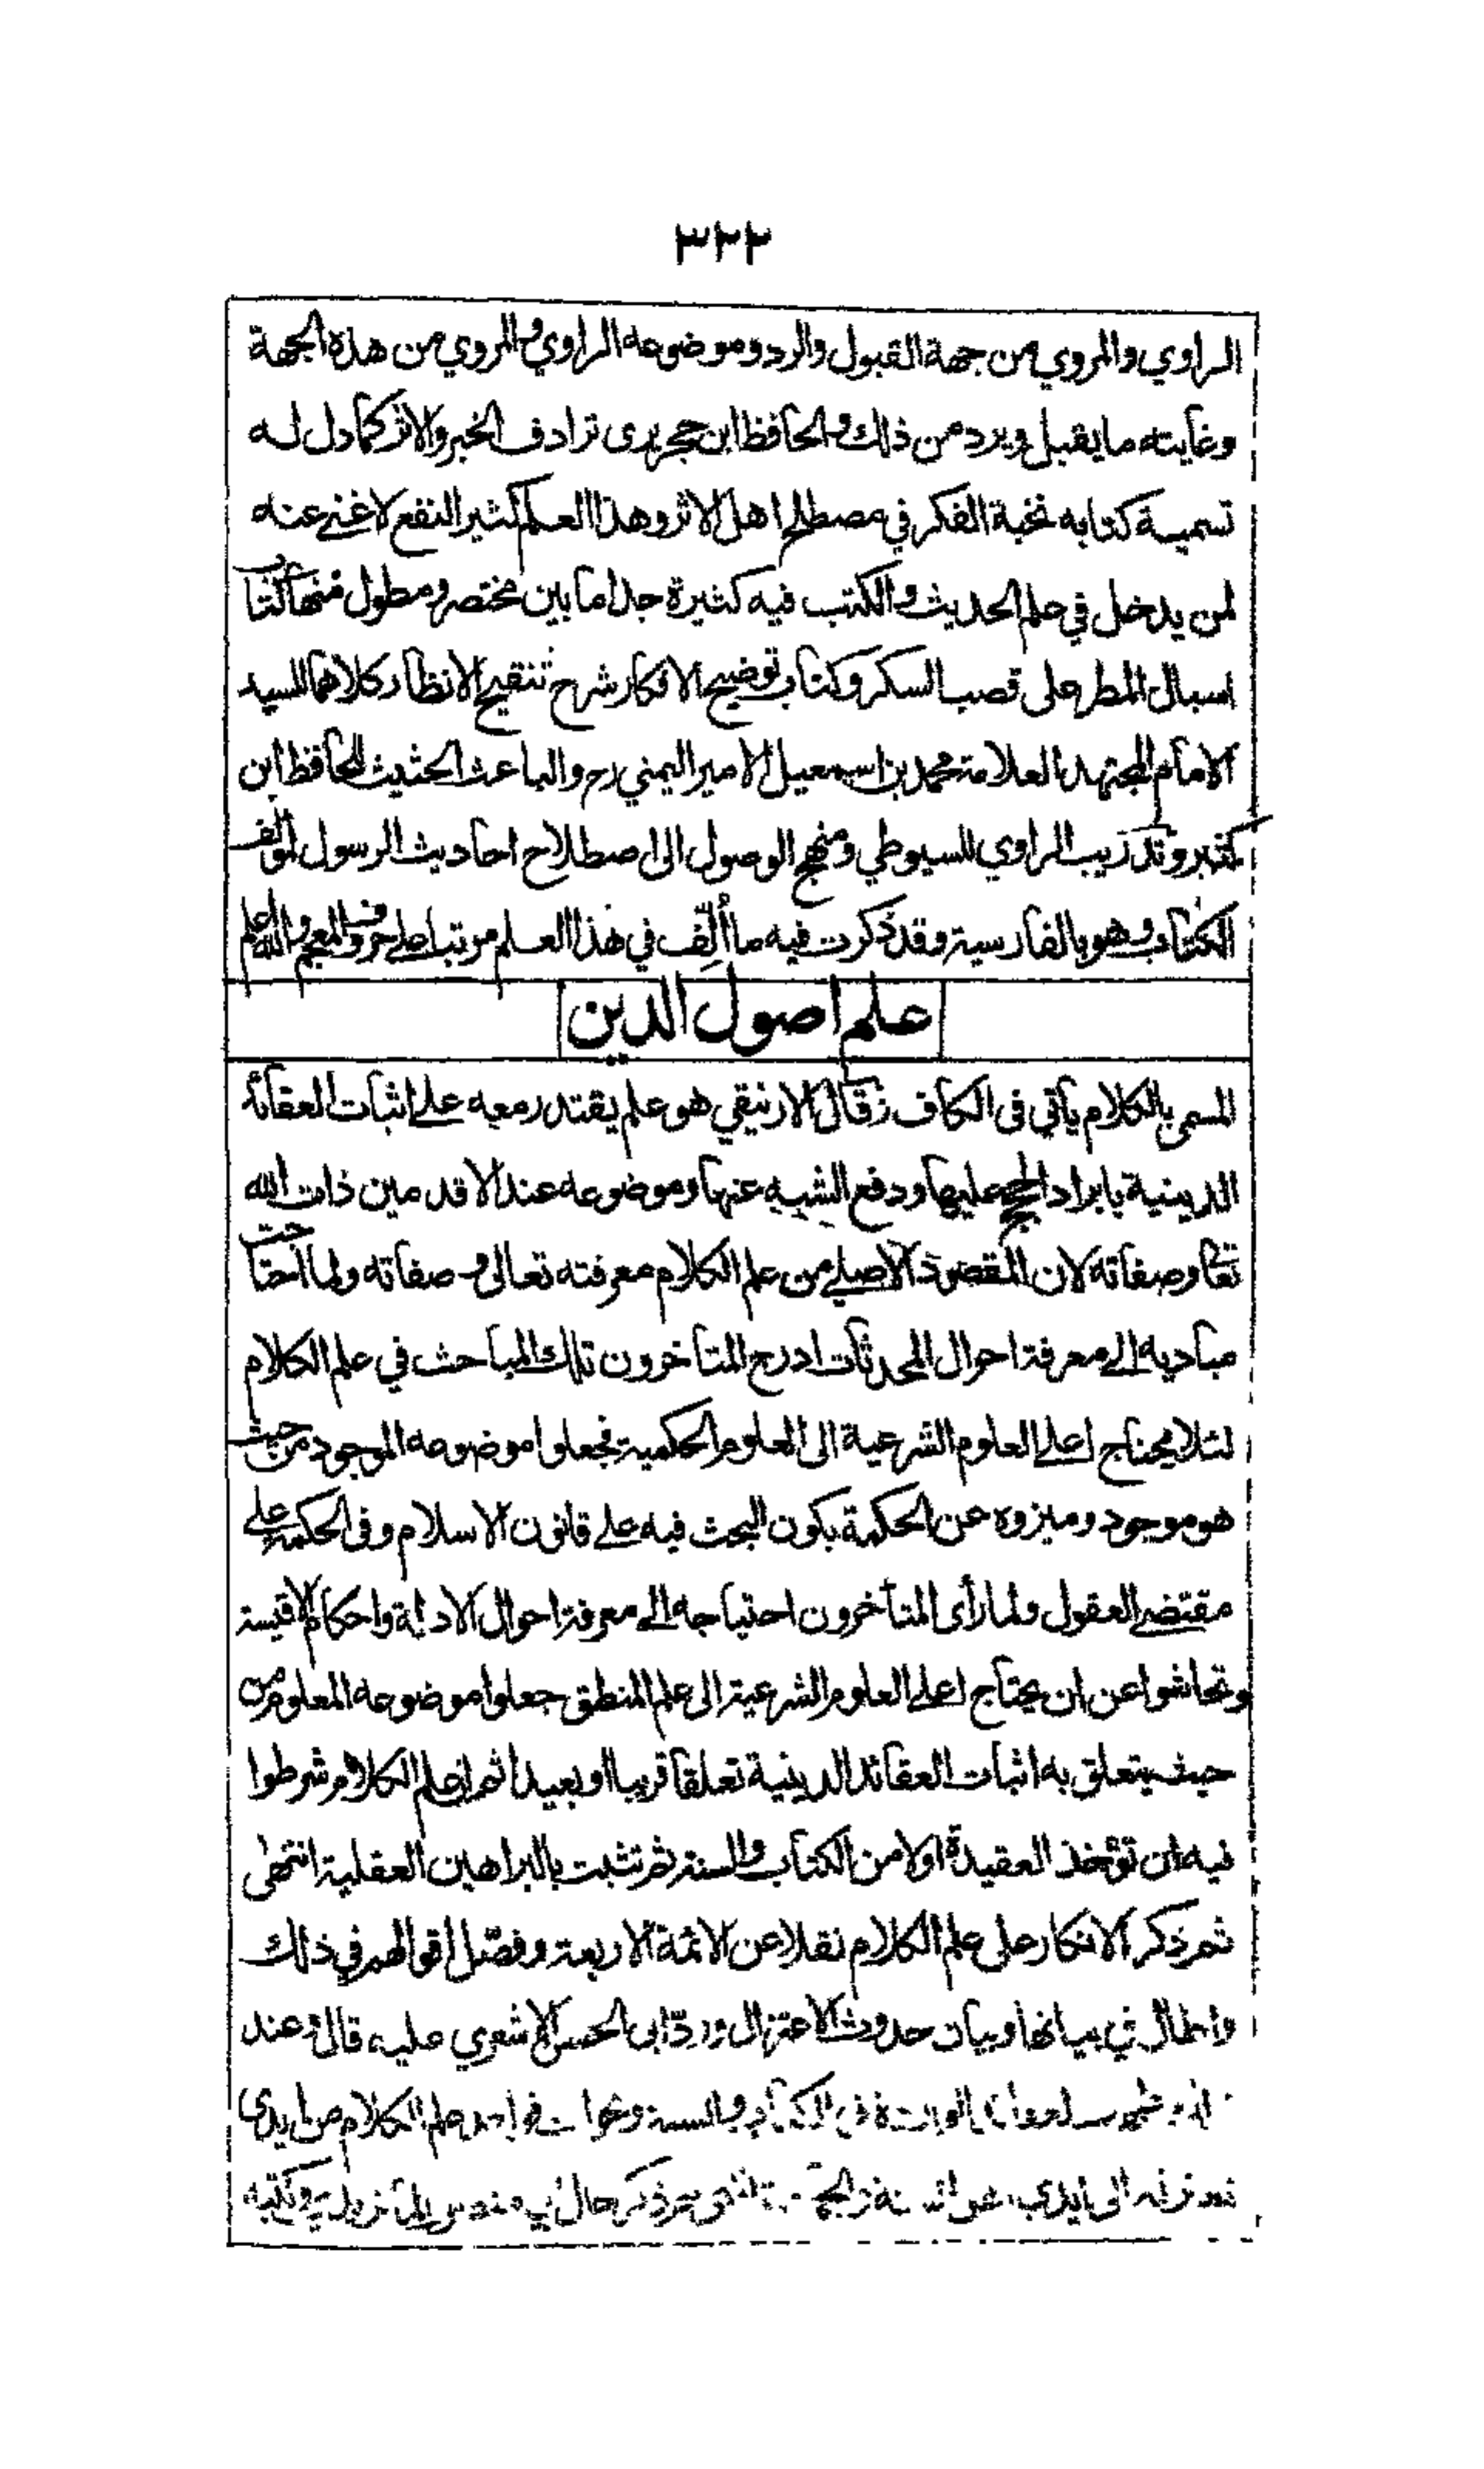 ٣٢٢
الراوي والمروي من جهة القبول والرد وموضوعه الراوي والمروي من هذه الجهة
وغايته ما يقبل ويرد من ذلك والحافظ ابن حجر يرى ترادف الخبر والاثر كما دل له
تسمية كتابه نخبة الفكر في مصطلح اهل الاثر وهذا العلم كثير النفع لا غنى عنه
لمن يدخل في علم الحديث والكتب فيه كثيرة جدا ما بين مختصر ومطول منها كتاب
اسبال المطر على قصب السكر وكتاب توضيح الافكار شرح تنقيح الانظار كلاهما للسيد
الامام المجتهد العلامة محمد بن اسمعيل الامير اليمني رح والباعث الحثيث للحافظ ابن
كثير وتدريب الراوي للسيوطي ومنهج الوصول الى اصطلاح احاديث الرسول لمؤلف
الكتاب وهو بالفارسية وقد ذكرت فيه ما أُلِّف في هذا العلم مرتبا على حروف المعجم والله اعلم
علم اصول الدين
المسمى بالكلام يأتي فى الكاف وقال الارنيقي هو علم يقتدر معه على اثبات العقائد
الدينية بايراد الحجج عليها ودفع الشبه عنها وموضوعه عند الاقدمين ذات الله
تعالى وصفاته لان المقصود الاصلي من علم الكلام معرفته تعالى وصفاته ولما احتاجت
مباديه الى معرفة احوال المحدثات ادرج المتأخرون تلك المباحث في علم الكلام
لئلا يحتاج اعلى العلوم الشرعية الى العلوم الحكمية فجعلوا موضوعه الموجود من حيث
هو موجود وميزوه عن الحكمة بكون البحث فيه على قانون الاسلام وفى الحكمة على
مقتضى العقول ولما رأى المتأخرون احتياجه الى معرفة احوال الادلة واحكام الاقيسة
وتحاشوا عن ان يحتاج اعلى العلوم الشرعية الى علم المنطق جعلوا موضوعه المعلوم من
حيث يتعلق به اثبات العقائد الدينية تعلقا قريبا او بعيدا ثم ان علم الكلام شرطوا
فيه ان تؤخذ العقيدة اولا من الكتاب والسنة ثم تثبت بالبراهين العقلية انتهى
ثم ذكر الانكار على علم الكلام نقلا عن الائمة الاربعة وفصّل اقوالهم في ذلك
واطال في بيانها وبيان حدوث الاعتزال وردّ ابى الحسن الاشعري عليه قال وعند
الكتاب والسنة علم الكلام من ايدى
الى ايدي ثم ذكر حال وكتبه